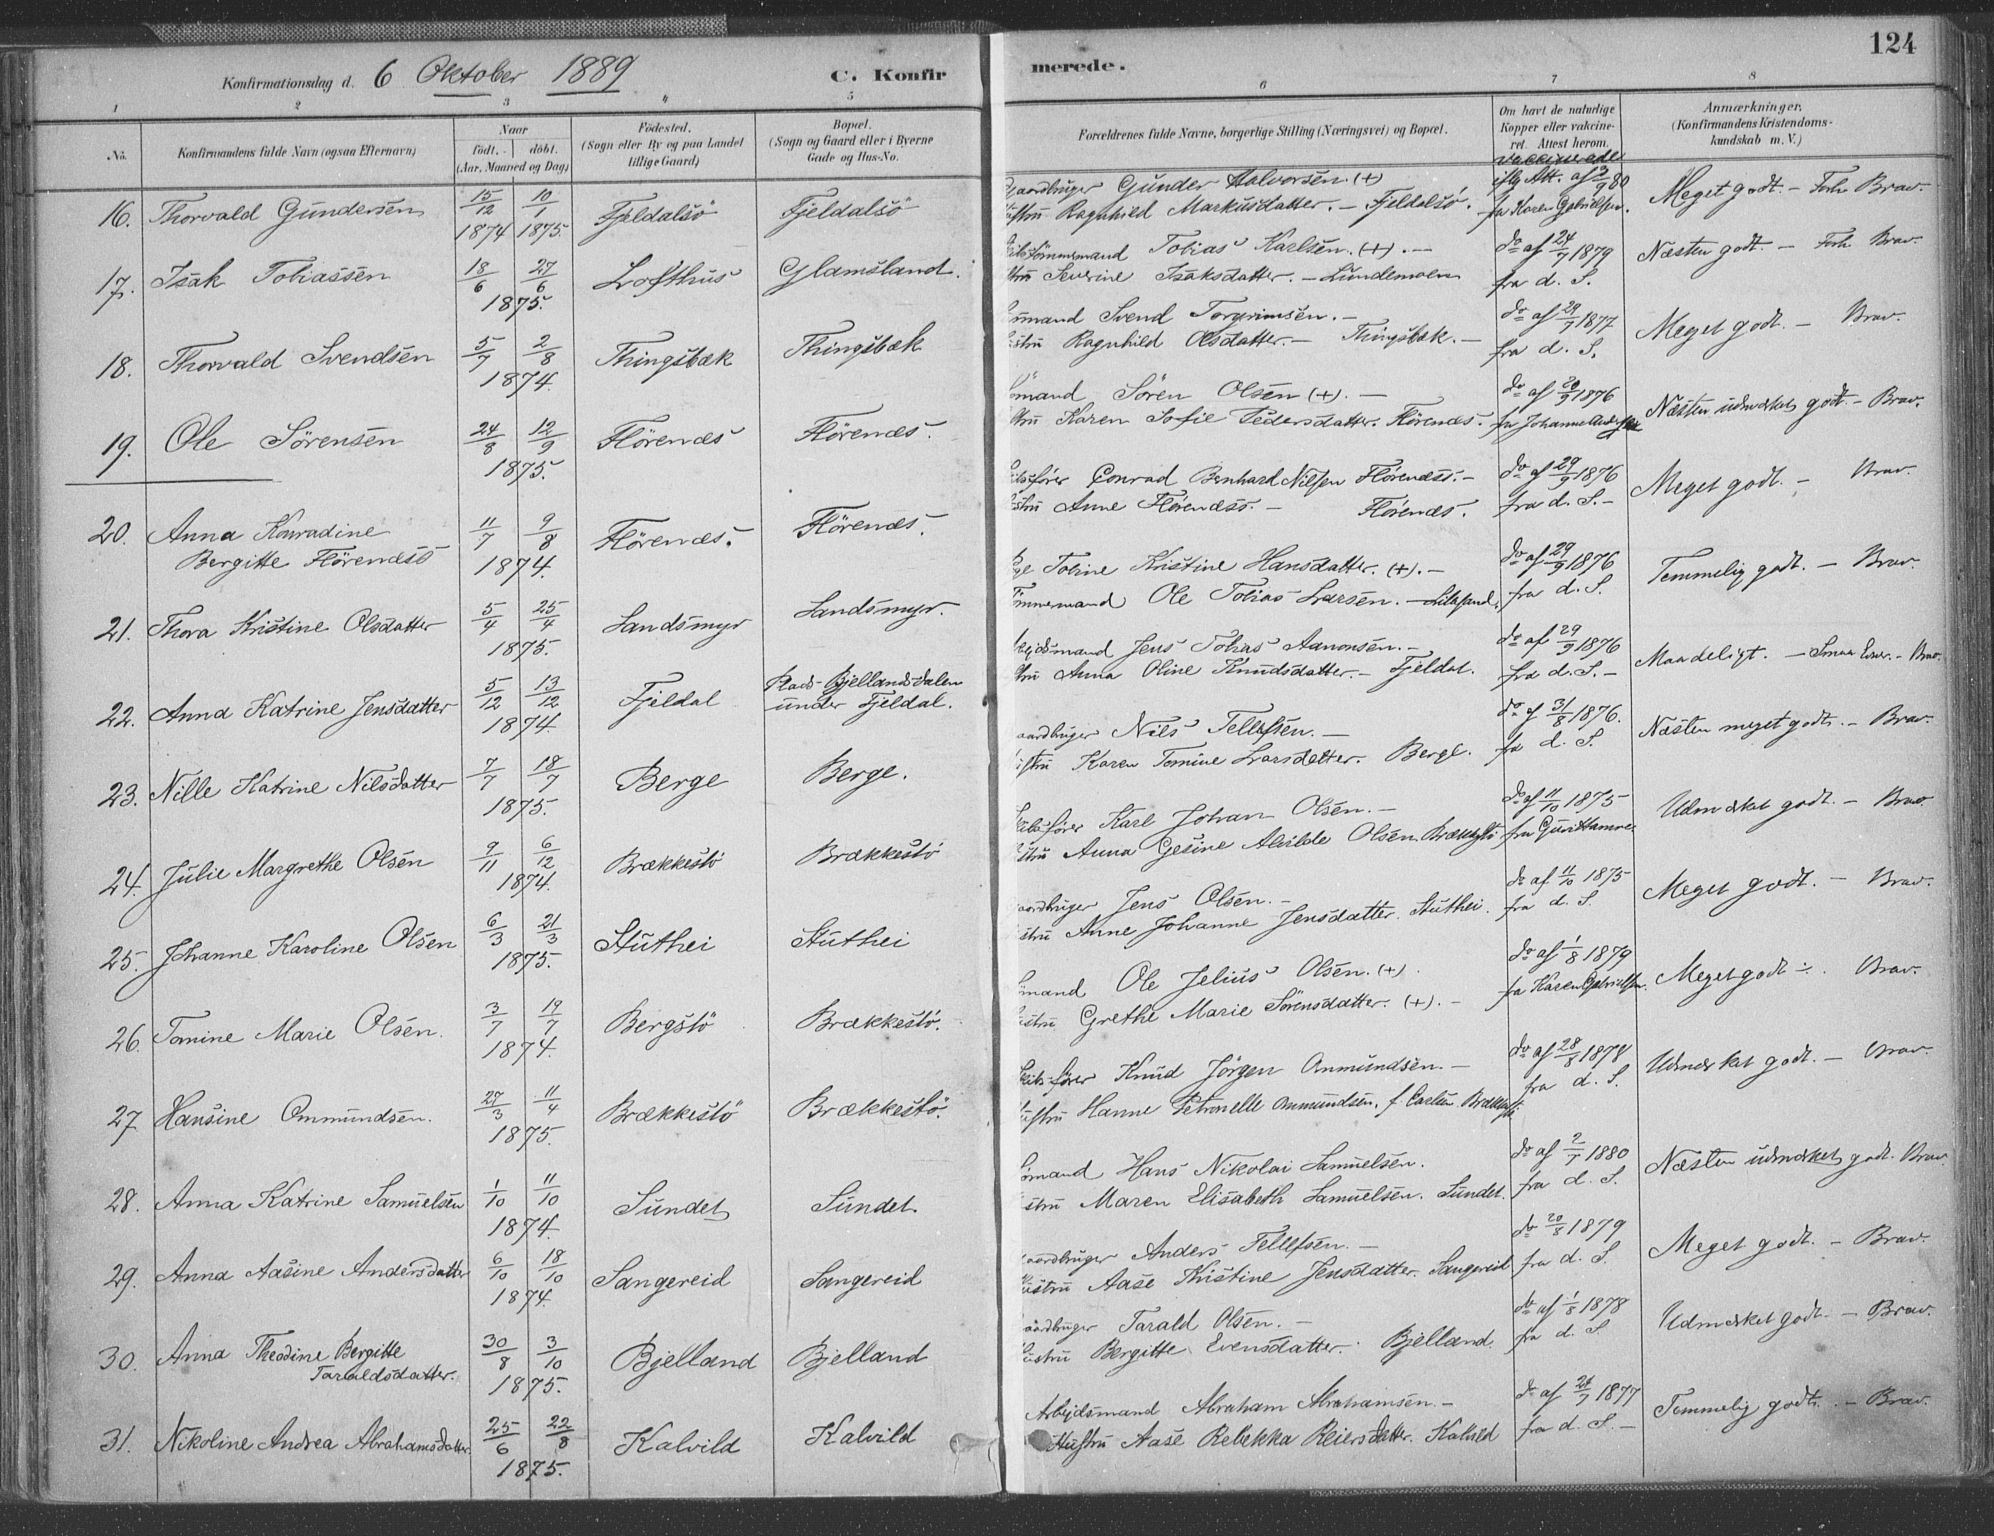 124
Konfirmationsdag d. 6 Oktober 1889
C. Konfir
merede.
1 2 3 4 5 6 7 8
No. Konfirmandens fulde Navn (ogsaa Efternavn)
Naar
født. døbt.
(Aar, Maaned og Dag)
Fødested.
(Sogn eller By og paa Landet
tillige Gaard)
Bopæl.
(Sogn og Gaard eller i Byerne
Gade og Hus-No.
Forældrenes fulde Navne, borgerlige Stilling (Næringsvei) og Bopæl.
Om havt de naturlige
Kopper eller vakcine-
ret. Attest herom.
Anmærkninger.
(Konfirmandens Kristendoms-
kundskab m. V.)
vakcinerede
16. Thorvald Gundersen 15/12 1874 10/1 1875. Fjeldalsö Fjeldalsö
Gaardbruger Gunder Halvorsen. (+)
Hustru Ragnhild Markusdatter. – Fjeldalsö.
iflg Att. af 2/9 80
fra Karen Gabrielsen.
Meget godt. – Brav.
17. Isak Tobiassen 18/6 27/6 1875. Lofthus Glamsland.
Tobias Karlsen. (+). –
Severine Isaksdatter. – Lundemoen
do af 24/7 1879
fra d. S.
Næsten godt. – Brav.
18. Thorvald Svendsen 5/7 2/8 1874. Thingsbæk Thingsbæk
Svend Torgrimsen. –
Ragnhild Olsdatter. – Thingsbæk. –
do af 29/7 1877
fra d. S.
Meget godt. – Brav.
19. Ole Sörensen 24/8 12/9 1875. Flörenæs Flörenæs.
ömand Sören Olsen (+). –
Karen Sofie Pedersdatter. Flörenæs.
do af 20/9 1876
fra Johanne
Næsten udmærket godt. – Brav.
20. Anna Konradine
Bergitte Flörenæss 11/7 9/8 1874. Flörenæs. Flörenæs.
Conrad Bernhard Nilsen Flörenæss. –
Anne Flörenæss. – Flörenæs.
do af 29/9 1876
fra d. S. –
Meget godt. – Brav.
21. Thora Kristine Olsdatter 5/4 25/4 1875. Sandsmyr Sandsmyr.
Tobine Kristine Hansdatter. (+). –
Tömmermand Ole Tobias Larsen. – Lillesand.
do af 29/9 1876
fra d. S.
Temmelig godt. – Brav.
22. Anna Katrine Jensdatter 5/12 13/12 1874. Fjeldal Plads Bjellandsdalen
under Fjeldal.
Arbejdsmand Jens Tobias Aanonsen. –
Anna Oline Knudsdatter. – Fjeldal.
do af 29/9 1876
fra d. S. –
Maadeligt. – Smaa Evner. – Brav.
23. Nille Katrine Nilsdatter 7/7 18/7 1875. Berge Berge.
Gaardbruger Nils Tellefsen. –
Hustru Karen Tomine Larsdatter. Berge.
do af 31/8 1876.
fra d. S.
Næsten meget godt. – Brav.
24. Julie Margrethe Olsen 9/11 6/12 1874. Brækkestö Brækkestö
Karl Johan Olsen. –
Anna Gesine Alvilde Olsen. Brækkestö
do af 11/10 1875
fra Guri Hamre.
Udmærket godt. – Brav.
25. Johanne Karoline Olsen 6/3 21/3 1875. Stuthei Stuthei
Gaardbruger Jens Olsen. –
Anne Johanne Jensdatter. Stuthei.
do af 11/10 1875
fra d. S.
Meget godt. – Brav.
26. Tomine Marie Olsen. 3/7 19/7 1874. Bergstö Brækkestö.
ömand Ole Jelius Olsen. (+).
Grethe Marie Sörensdatter. (+). –
do af 1/8 1879
fra Karen Gabrielsen.
Meget godt –. Brav.
27. Hansine Ommundsen. 27/3 11/4 1875. Brækkestö Brækkestö.
Knud Jörgen Ommundsen. –
Hustru Hanne Petronelle Ommundsen. f. Carlsen Brækkestö
do af 28/8 1878
fra d. S.
Udmærket godt. – Brav.
28. Anna Katrine Samuelsen 1/10 11/10 1874. Sundet Sundet.
ömand Hans Nikolai Samuelsen.
Maren Elisabeth Samuelsen. Sundet.
do af 2/7 1880
fra d. S.
Næsten udmærket godt. Brav.
29. Anna Aasine Andersdatter 6/10 18/10 1874. Sangereid Sangereid
Gaardbruger Anders Tellefsen. –
Hustru Aase Kristine Jensdatter. Sangereid
do 20/8 1879
fra d. S.
Meget godt. – Brav.
30. Anna Theodine Bergitte
Taraldsdatter. 30/8 3/10 1875. Bjelland Bjelland
Gaardbruger Tarald Olsen. –
Hustru Bergitte Evensdatter. – Bjelland.
do af 1/8 1878
fra d. S.
Udmærket godt. – Brav.
31. Nikoline Andrea Abrahamsdatter. 25/6 22/8 1875. Kalvild Kalvild
Arbejdsmand Abraham Abrahamsen. –
Hustru Aase Rebekka Reiersdatter. Kalvild
do af 24/7 1877
fra d. S. –
Temmelig godt. – Brav.